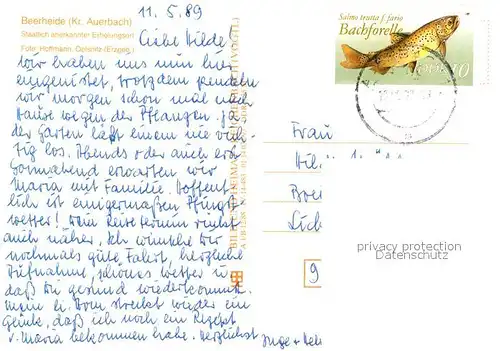 Beerheide (Kr. Auerbach)
Staatlich anerkannter Erholungsort
Foto: Hoffmann, Oelsnitz (Erzgeb.)
11.5.89
Liebe Hilde,
wir haben uns nun hier
eingenistet, trotzdem pendeln
wir morgen schon mal nach
Hause wegen der Pflanzen, ja
der Garten läßt einem nie rich-
tig los. Abends oder auch erst
Sonnabend erwarten wir
Maria mit Familie. Hoffent-
lich ist einigermaßen Pfingst-
wetter! Dein Reisetermin rückt
auch näher. Ich wünsche Dir
nochmals gute Fahrt, herzliche
Aufnahme, schönes Wetter u.
daß Du gesund wiederkommst.
ein
daß ich noch ein Rezept
v. Maria bekommen habe. Herzlichst Inge +
BILD UND HEIMAT
Salmo trutta f. fario
Bachforelle
10
Frau
privacy protection
Datenschutz
9